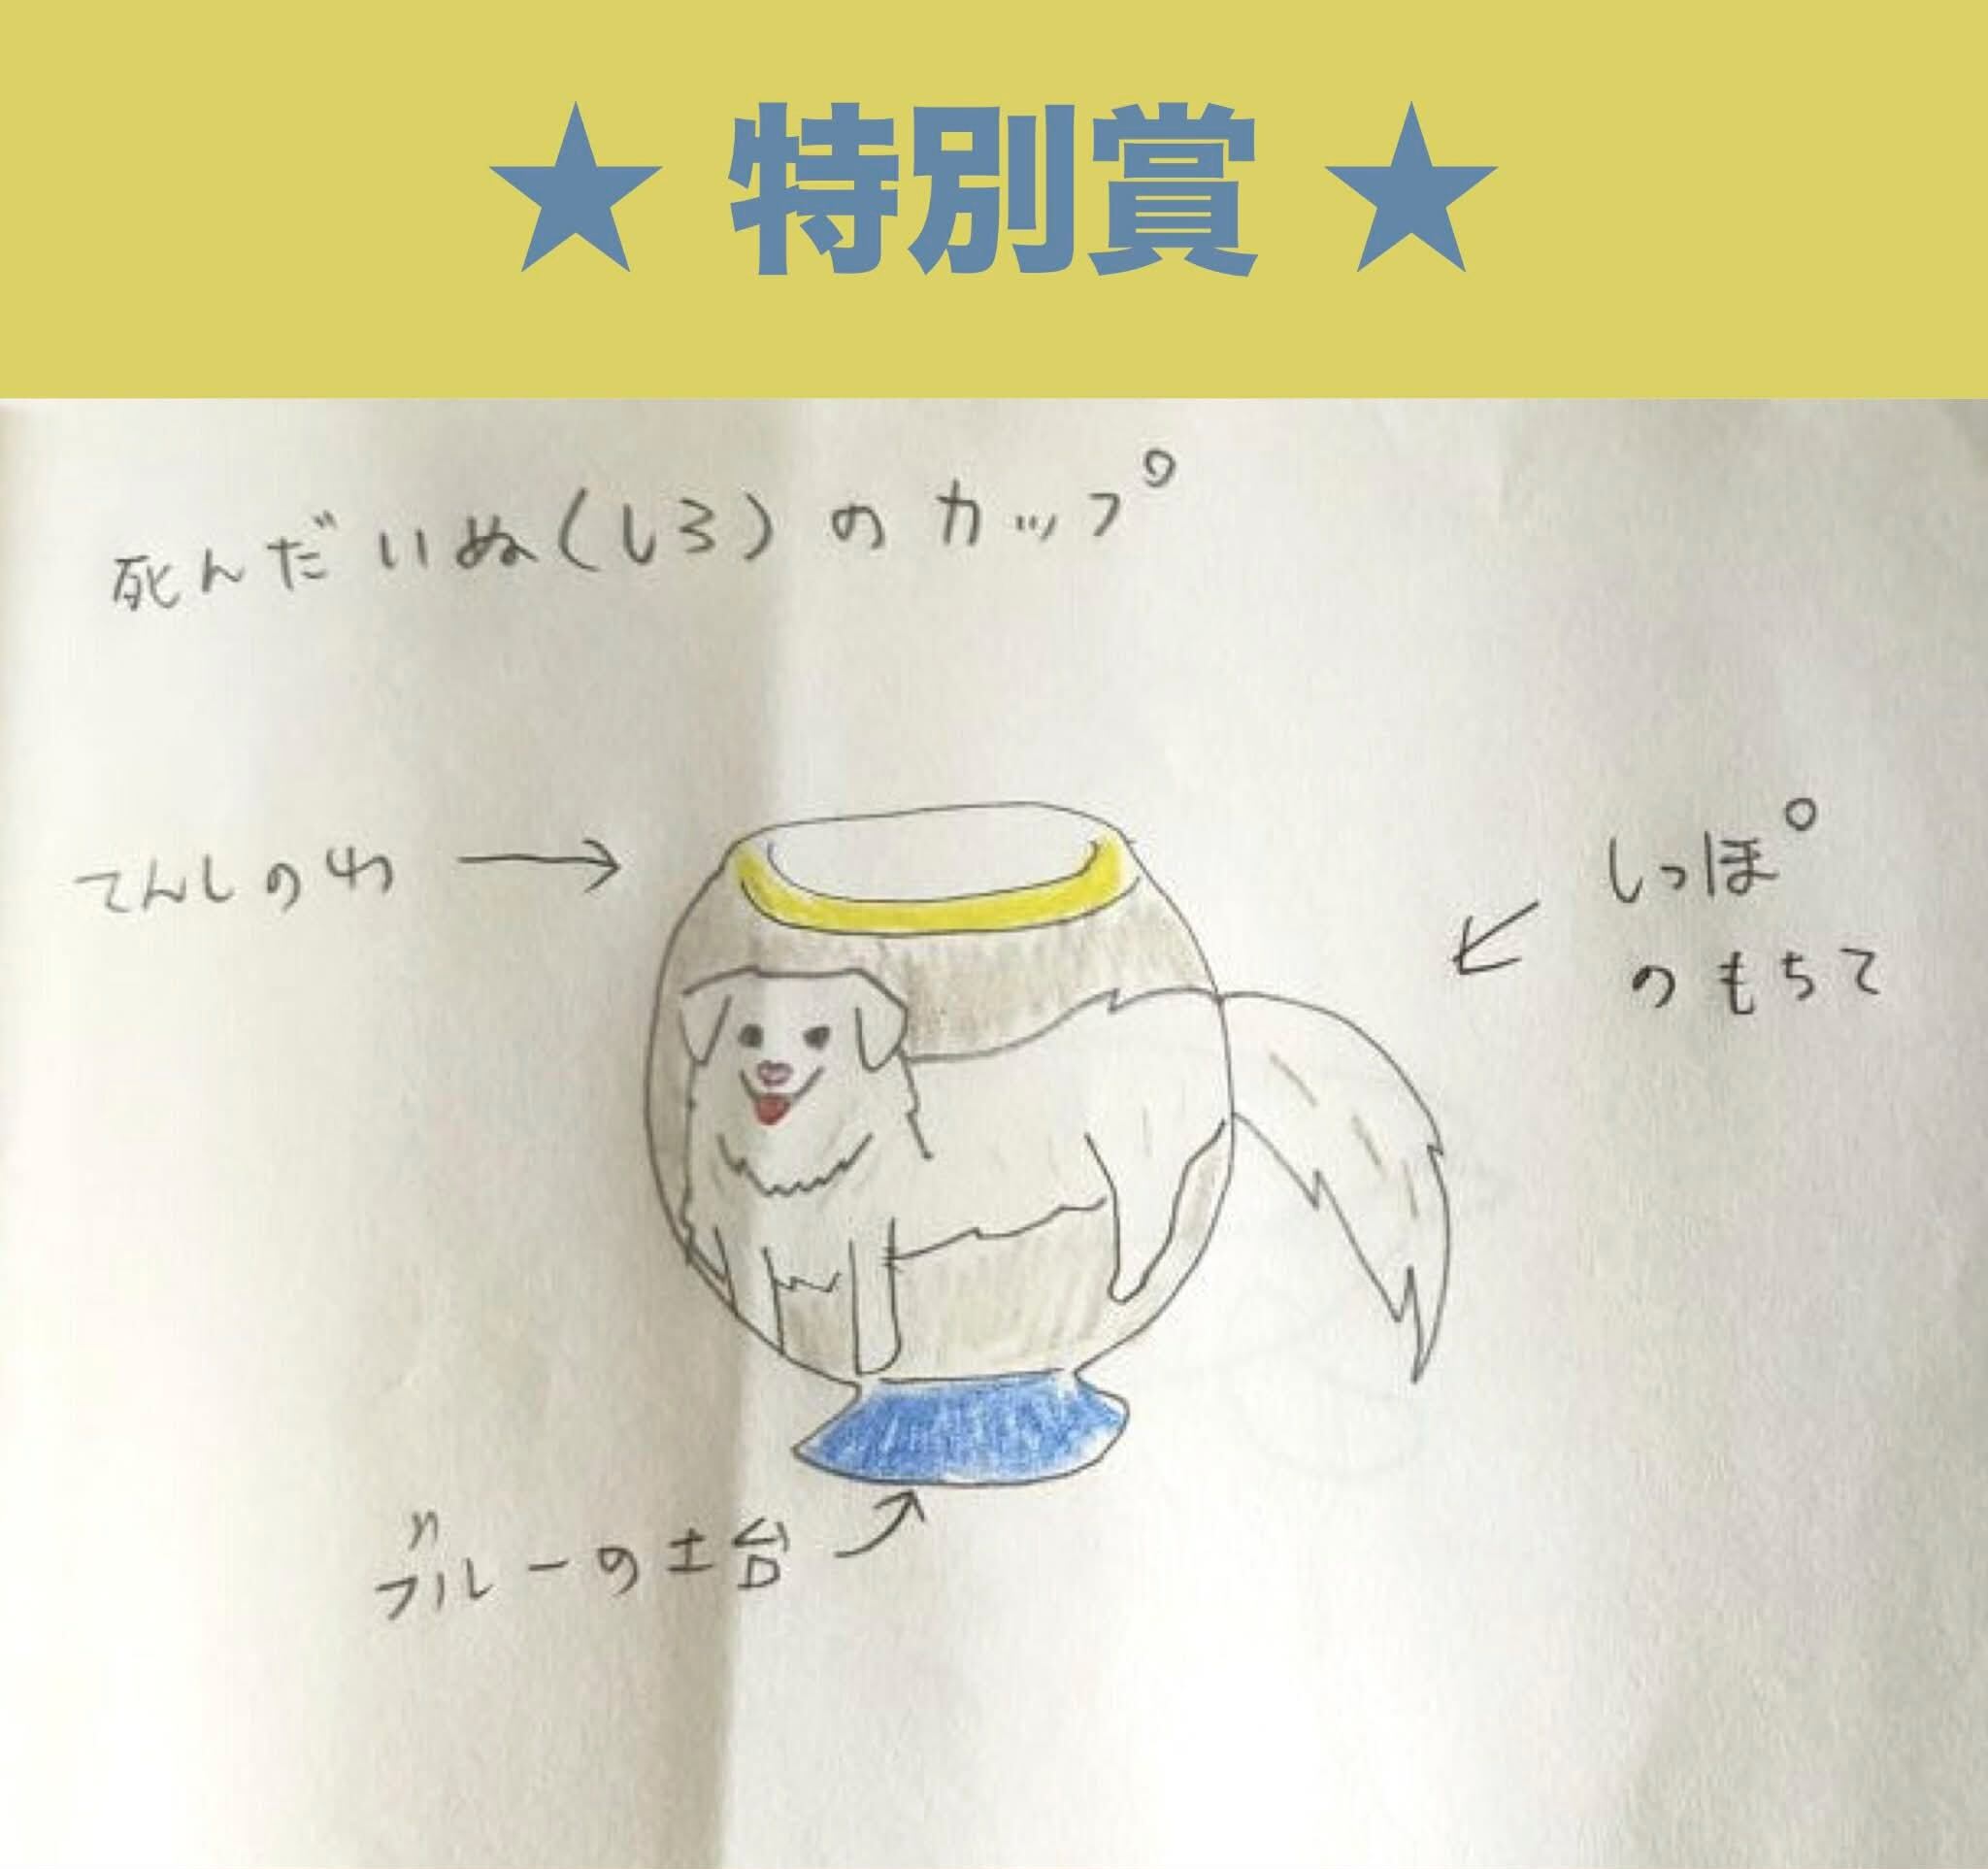 ★ 特別賞 ★
死んだいぬ(しろ)のカップ
てんしのわ →
しっぽ
のもちて
ブルーの土台